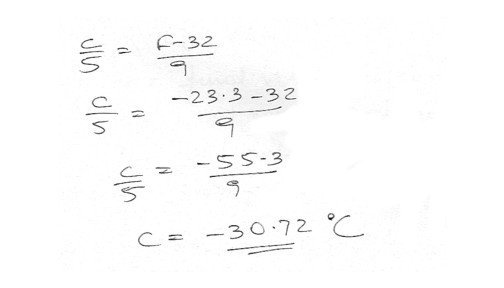 c/5 = F-32/9
c/5 = -23.3-32/9
c/5 = -55.3/9
c = -30.72 °C